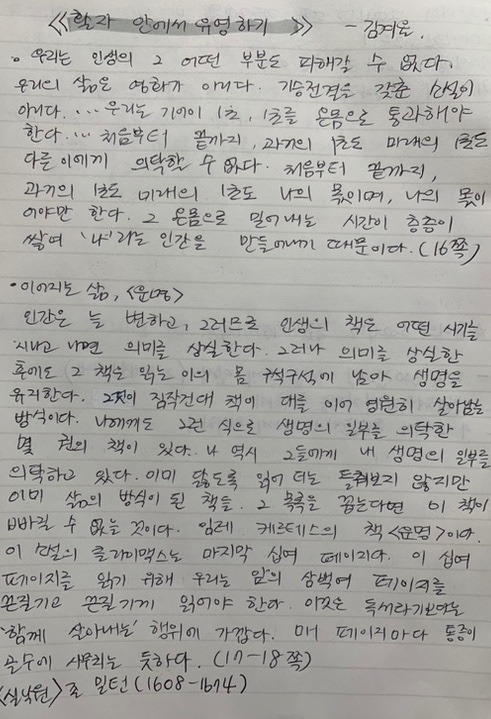 《활자 안에서 유영하기》 - 김겨울.
• 우리는 인생의 그 어떤 부분도 피해갈 수 없다.
우리의 삶은 영화가 아니다. 기승전결을 갖춘 소설이
아니다. … 우리는 기어이 1초, 1초를 온몸으로 통과해야
한다. … 처음부터 끝까지, 과거의 1초도 미래의 1초도
다른 이에게 의탁할 수 없다. 처음부터 끝까지,
과거의 1초도 미래의 1초도 나의 몫이며, 나의 몫이
어야만 한다. 그 온몸으로 밀어내는 시간이 층층이
쌓여 '나'라는 인간을 만들어내기 때문이다. (16쪽)
• 이어지는 삶, <운명>
인간은 늘 변하고, 그러므로 인생의 책은 어떤 시기를
지나고 나면 의미를 상실한다. 그러나 의미를 상실한
후에도 그 책은 읽는 이의 몸 구석구석에 남아 생명을
유지한다. 그것이 짐작건대 책이 대를 이어 영원히 살아남는
방식이다. 나에게도 그런 식으로 생명의 일부를 의탁한
몇 권의 책이 있다. 나 역시 그들에게 내 생명의 일부를
의탁하고 있다. 이미 닳도록 읽어 더는 들춰보지 않지만
이미 삶의 방식이 된 책들. 그 목록을 꼽는다면 이 책이
빠질 수 없는 것이다. 임레 케르테스의 책 <운명>이다.
이 소설의 클라이맥스는 마지막 십여 페이지다. 이 십여
페이지를 읽기 위해 우리는 앞의 삼백여 페이지를
끈질기고 끈질기게 읽어야 한다. 이것은 독서라기보다는
'함께 살아내는' 행위에 가깝다. 매 페이지마다 통증이
골수에 사무치는 듯하다. (17-18쪽)
<실낙원> 존 밀턴 (1608-1674)